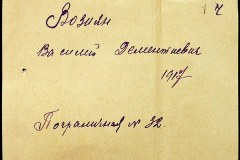 Возиян
Василий Дементиевич
1917
Пограничная № 32.